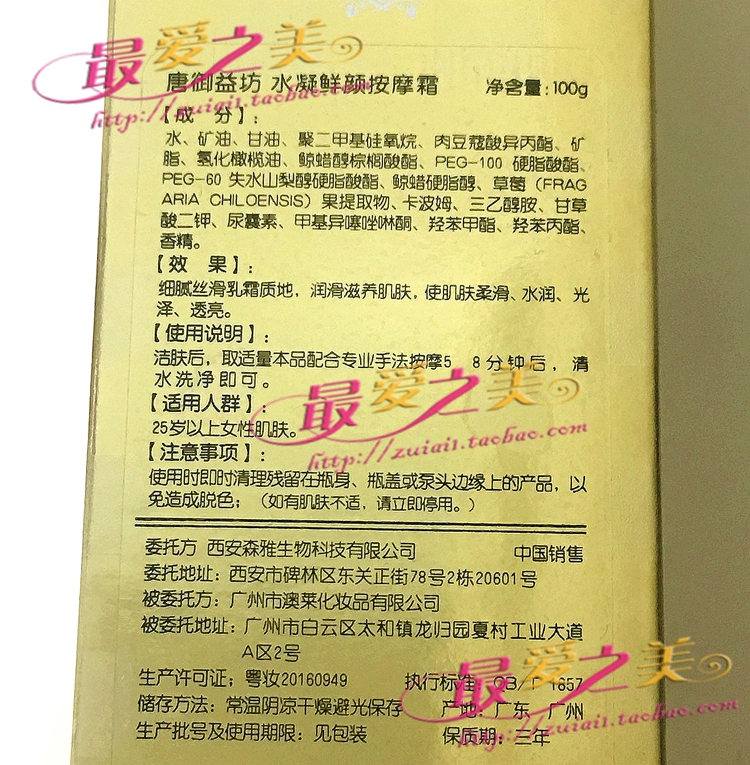 最爱之美
唐御益坊 水凝鲜颜按摩霜 净含量：100g
http://zuiai1.taobao.com
【成 分】：
水、矿油、甘油、聚二甲基硅氧烷、肉豆蔻酸异丙酯、矿
脂、氢化橄榄油、鲸蜡醇棕榈酸酯、PEG-100 硬脂酸酯、
PEG-60 失水山梨醇硬脂酸酯、鲸蜡硬脂醇、草莓（FRAG
ARIA CHILOENSIS）果提取物、卡波姆、三乙醇胺、甘草
酸二钾、尿囊素、甲基异噻唑啉酮、羟苯甲酯、羟苯丙酯、
香精。
【效 果】：
细腻丝滑乳霜质地，润滑滋养肌肤，使肌肤柔滑、水润、光
泽、透亮。
【使用说明】：
洁肤后，取适量本品配合专业手法按摩5 8分钟后，清
水洗净即可。
最爱之美
【适用人群】：
http://zuiai1.taobao.com
25岁以上女性肌肤。
【注意事项】：
使用时即时清理残留在瓶身、瓶盖或泵头边缘上的产品，以
免造成脱色；（如有肌肤不适，请立即停用。）
委托方 西安森雅生物科技有限公司 中国销售
委托地址：西安市碑林区东关正街78号2栋20601号
被委托方：广州市澳莱化妆品有限公司
被委托地址：广州市白云区太和镇龙归园夏村工业大道
A区2号
最爱之美
生产许可证：粤妆20160949 执行标准：QB/T 1657
储存方法：常温阴凉干燥避光保存 产地：广东、广州
http://zuiai1.taobao.com
生产批号及使用期限：见包装 保质期：三年